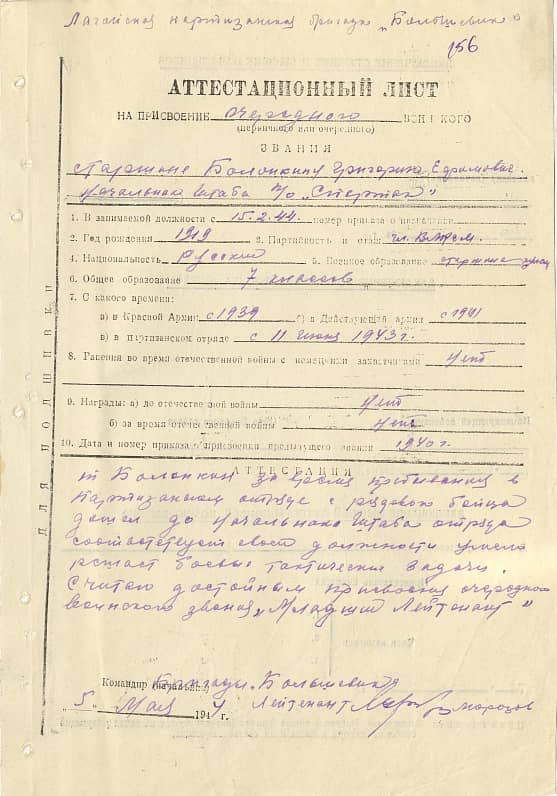 Логойская партизанская бригада "Большевик"
156
АТТЕСТАЦИОННЫЙ ЛИСТ
НА ПРИСВОЕНИЕ очередного ВОИНСКОГО
(первичного или очередного)
ЗВАНИЯ
старшине Болонкину Григорию Ефимович.
Начальника Штаба п/о "Спартак"
1. В занимаемой должности с 15.2.44. номер приказа о назначении
2. Год рождения 1919 3. Партийность и стаж чл. ВЛКСМ.
4. Национальность Русский 5. Военное образование
6. Общее образование 7 классов
7. С какого времени:
а) в Красной Армии с 1939 б) в Действующей армии с 1941
в) в партизанском отряде с 11 июня 1943 г.
8. Ранения во время отечественной войны с немецкими захватчиками Нет
9. Награды: а) до отечественной войны Нет
б) за время отечественной войны Нет
10. Дата и номер приказа о присвоении предыдущего звания 1940 г.
АТТЕСТАЦИЯ
т Болонкин за время пребывания в
Партизанском отряде с рядового бойца
дошел до Начальника Штаба отряда
соответствует своей должности умело
решает боевые тактические задачи.
Считаю достойным присвоения очередного
воинского звания "Младший Лейтенант"
Командир (начальник) Бригады Большевик
"5" Мая 1944 г. Лейтенант Морозов
ДЛЯ ПОДШИВКИ